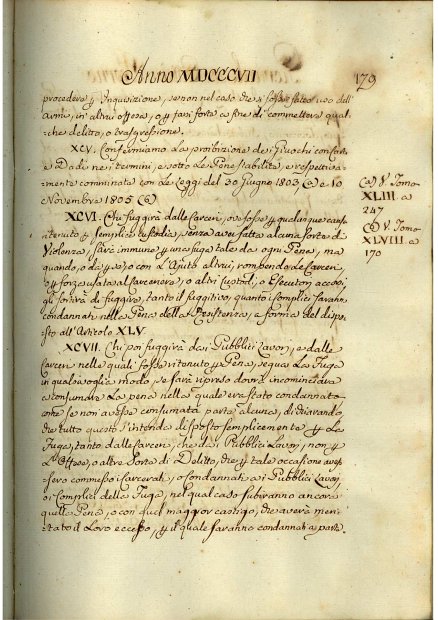 Anno MDCCCVII
179
procedere p Inquisizione, se non nel caso che si fosse fatto uso dell'
Armi, in altrui offesa, o p farsi forte a fine di commettere qual-
che delitto, o trasgressione.
XCV. Confermiamo la proibizione dei Giuochi con Carte
e Dadi nei termini, e sotto Le Pene stabilite, e respettiva-
mente comminate con Le Leggi del 30 Giugno 1803 (a) e 10
Novembre 1805 (b)
(a) V. Tomo
XLIII. a
247
(b) V. Tomo
XLVIII. a
170
XCVI. Chi fuggirà dalle Carceri, ove fosse p qualunque causa
ritenuto p semplice custodia, senza aver fatta alcuna sorta di
Violenza, sarà immune p una fuga tale da ogni Pena, ma
quando, o da se, o con L'Ajuto altrui, rompendo Le Carceri,
o p forza usata al Carceriere, o altri Custodi, o Esecutori accaj,
gli sortirà di fuggire, tanto il fuggitivo, quanto i Complici saran-
condannati nella Pena della Resistenza, a forma del dispo-
sto all'Articolo XLV.
XCVII. Chi poi fuggirà dai Pubblici Lavorj, e dalle
Carceri nelle quali fosse ritenuto p Pena, segua La Fuga
in qualsivoglia modo, se sarà ripreso dovrà incominciare
a consumare La pena nella quale era stato condannato
come se non avesse consumata parte alcuna, dichiarando,
che tutto questo s'intenda disposto semplicemente p La
Fuga, tanto dalle Carceri, che dai Pubblici Lavorj, non p
L'Offese, o altre Sorte di Delitto, che p tale occasione aves-
sero commesso i Carcerati, o Condannati ai Pubblici Lavorj,
o i Complici della Fuga, nel qual caso subiranno ancora
quelle Pene, o con quel maggior castigo, che averà meri-
tato il Loro eccesso, p il quale saranno condannati a parte.